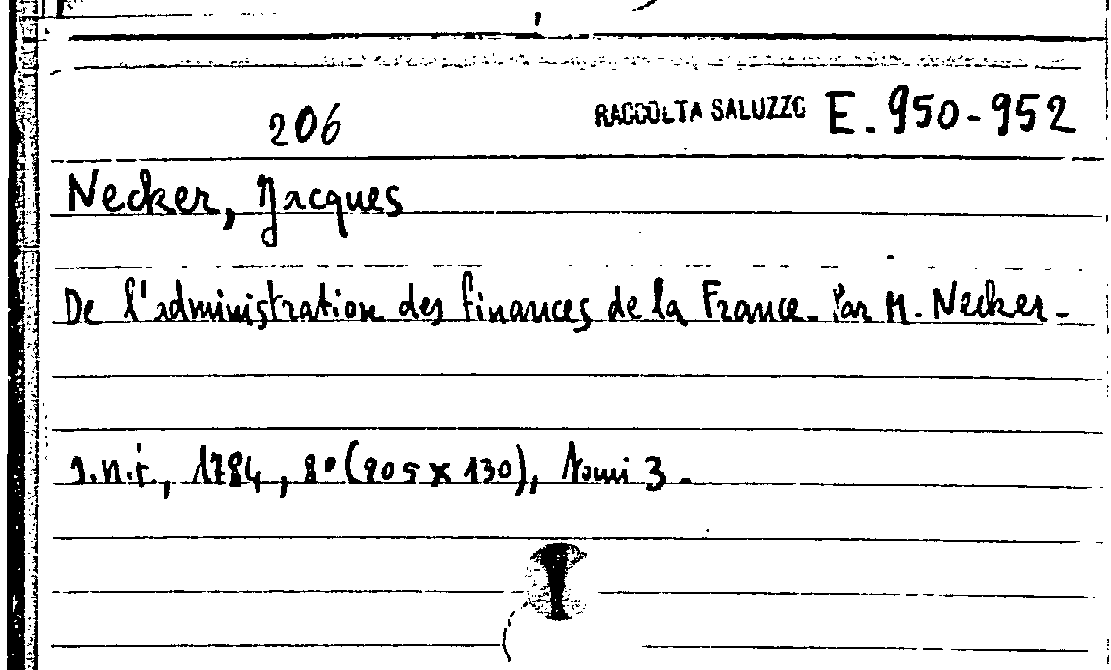 206 RACCOLTA SALUZZO E. 950-952
Necker, Jacques
De l'administration des finances de la France. Par M. Necker.
s.n.t., 1784, 8° (205 x 130), tomi 3.